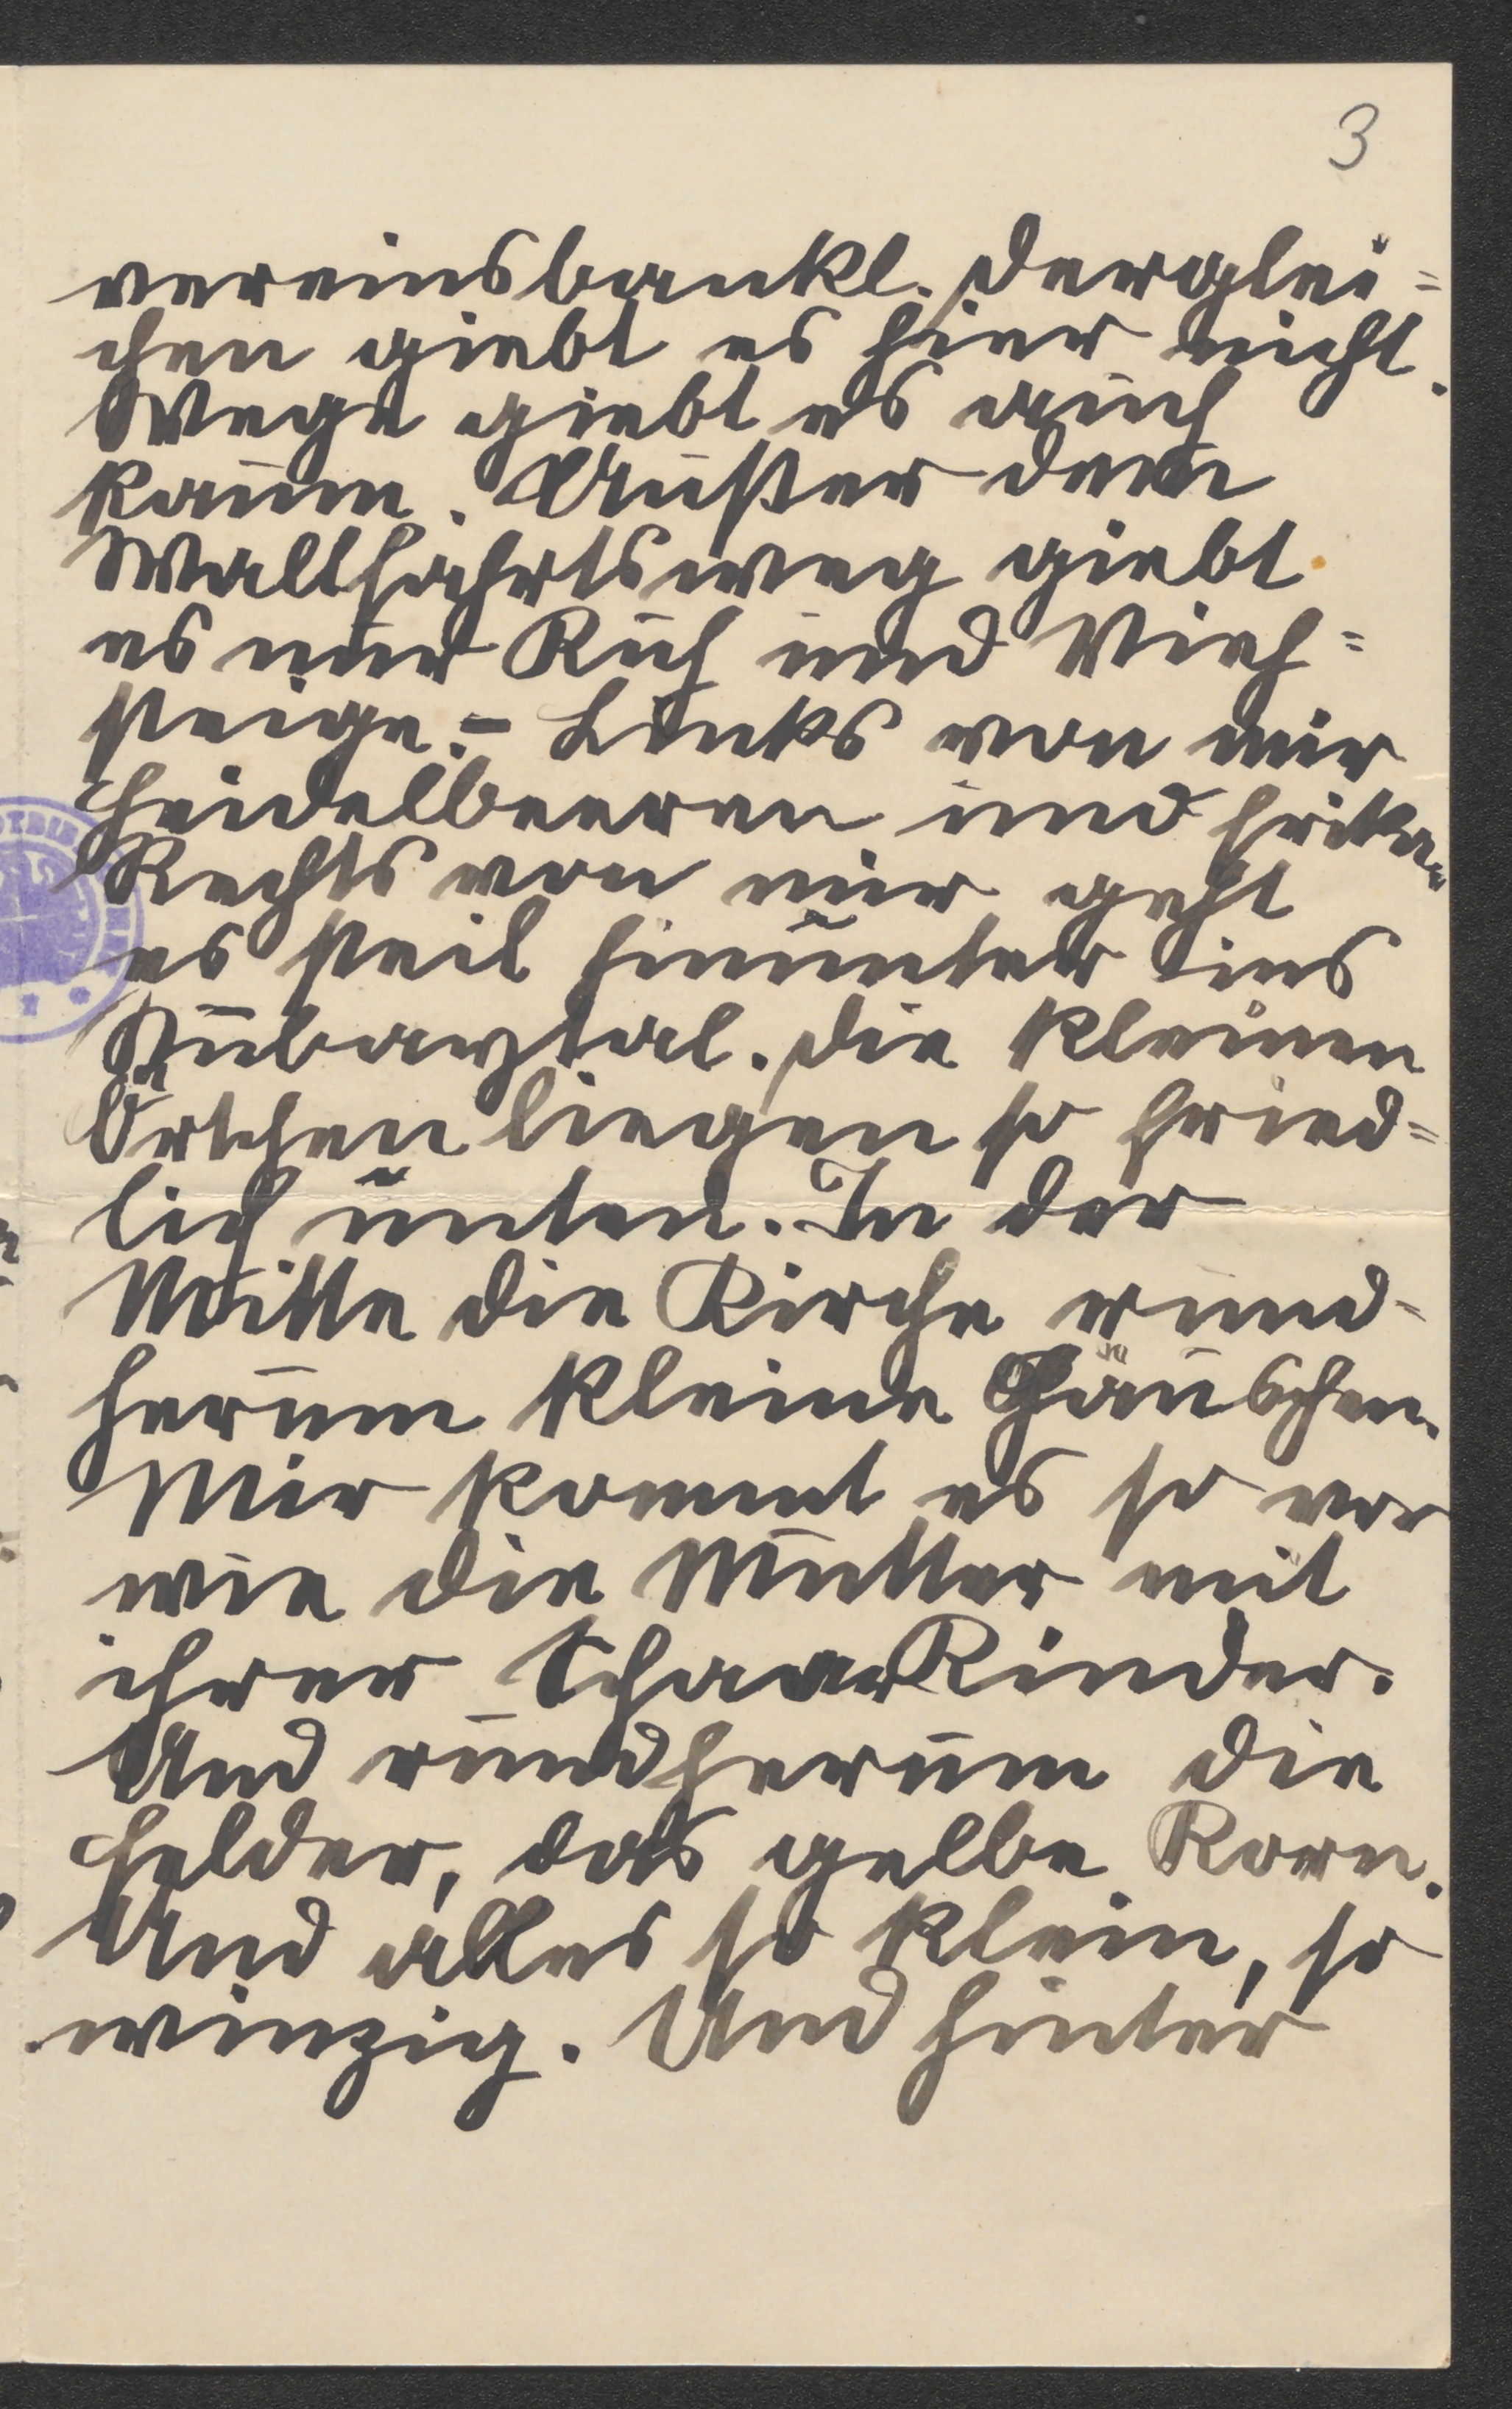 3
vereinsbankl. Derglei=
chen giebt es hier nicht.
Wege giebt es auch
kaum. Außer dem
Wallfahrtsweg giebt
es nur Kuh und Vieh=
steige. – Links von mir
Heidelbeeren und Erika
Rechts von mir geht
es steil hinunter ins
Örtchen liegen so fried=
lich unten. In der
Mitte die Kirche rund-
herum kleine Häuschen.
Mir kommt es so vor
wie die Mutter mit
ihrer Schaar Kinder.
Und rundherum die
Felder, das gelbe Korn.
Und alles so klein, so
winzig. Und hinter